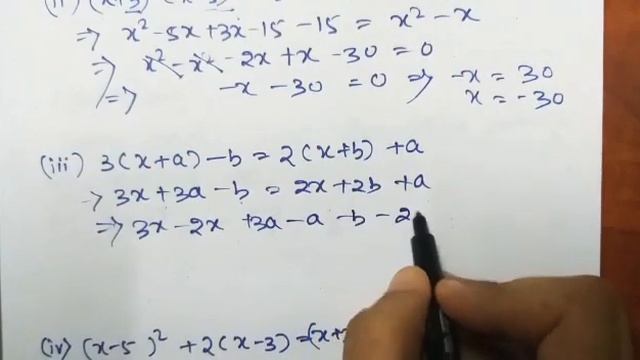 (ii) (x+3) (x-5)
=> x² - 5x + 3x - 15 - 15 = x² - x
=> x² - x² - 2x + x - 30 = 0
=> -x - 30 = 0 => -x = 30
x = -30
(iii) 3(x+a) - b = 2(x+b) + a
-> 3x + 3a - b = 2x + 2b + a
=> 3x - 2x + 3a - a - b - 2
(iv) (x-5)² + 2(x-3) = (x+